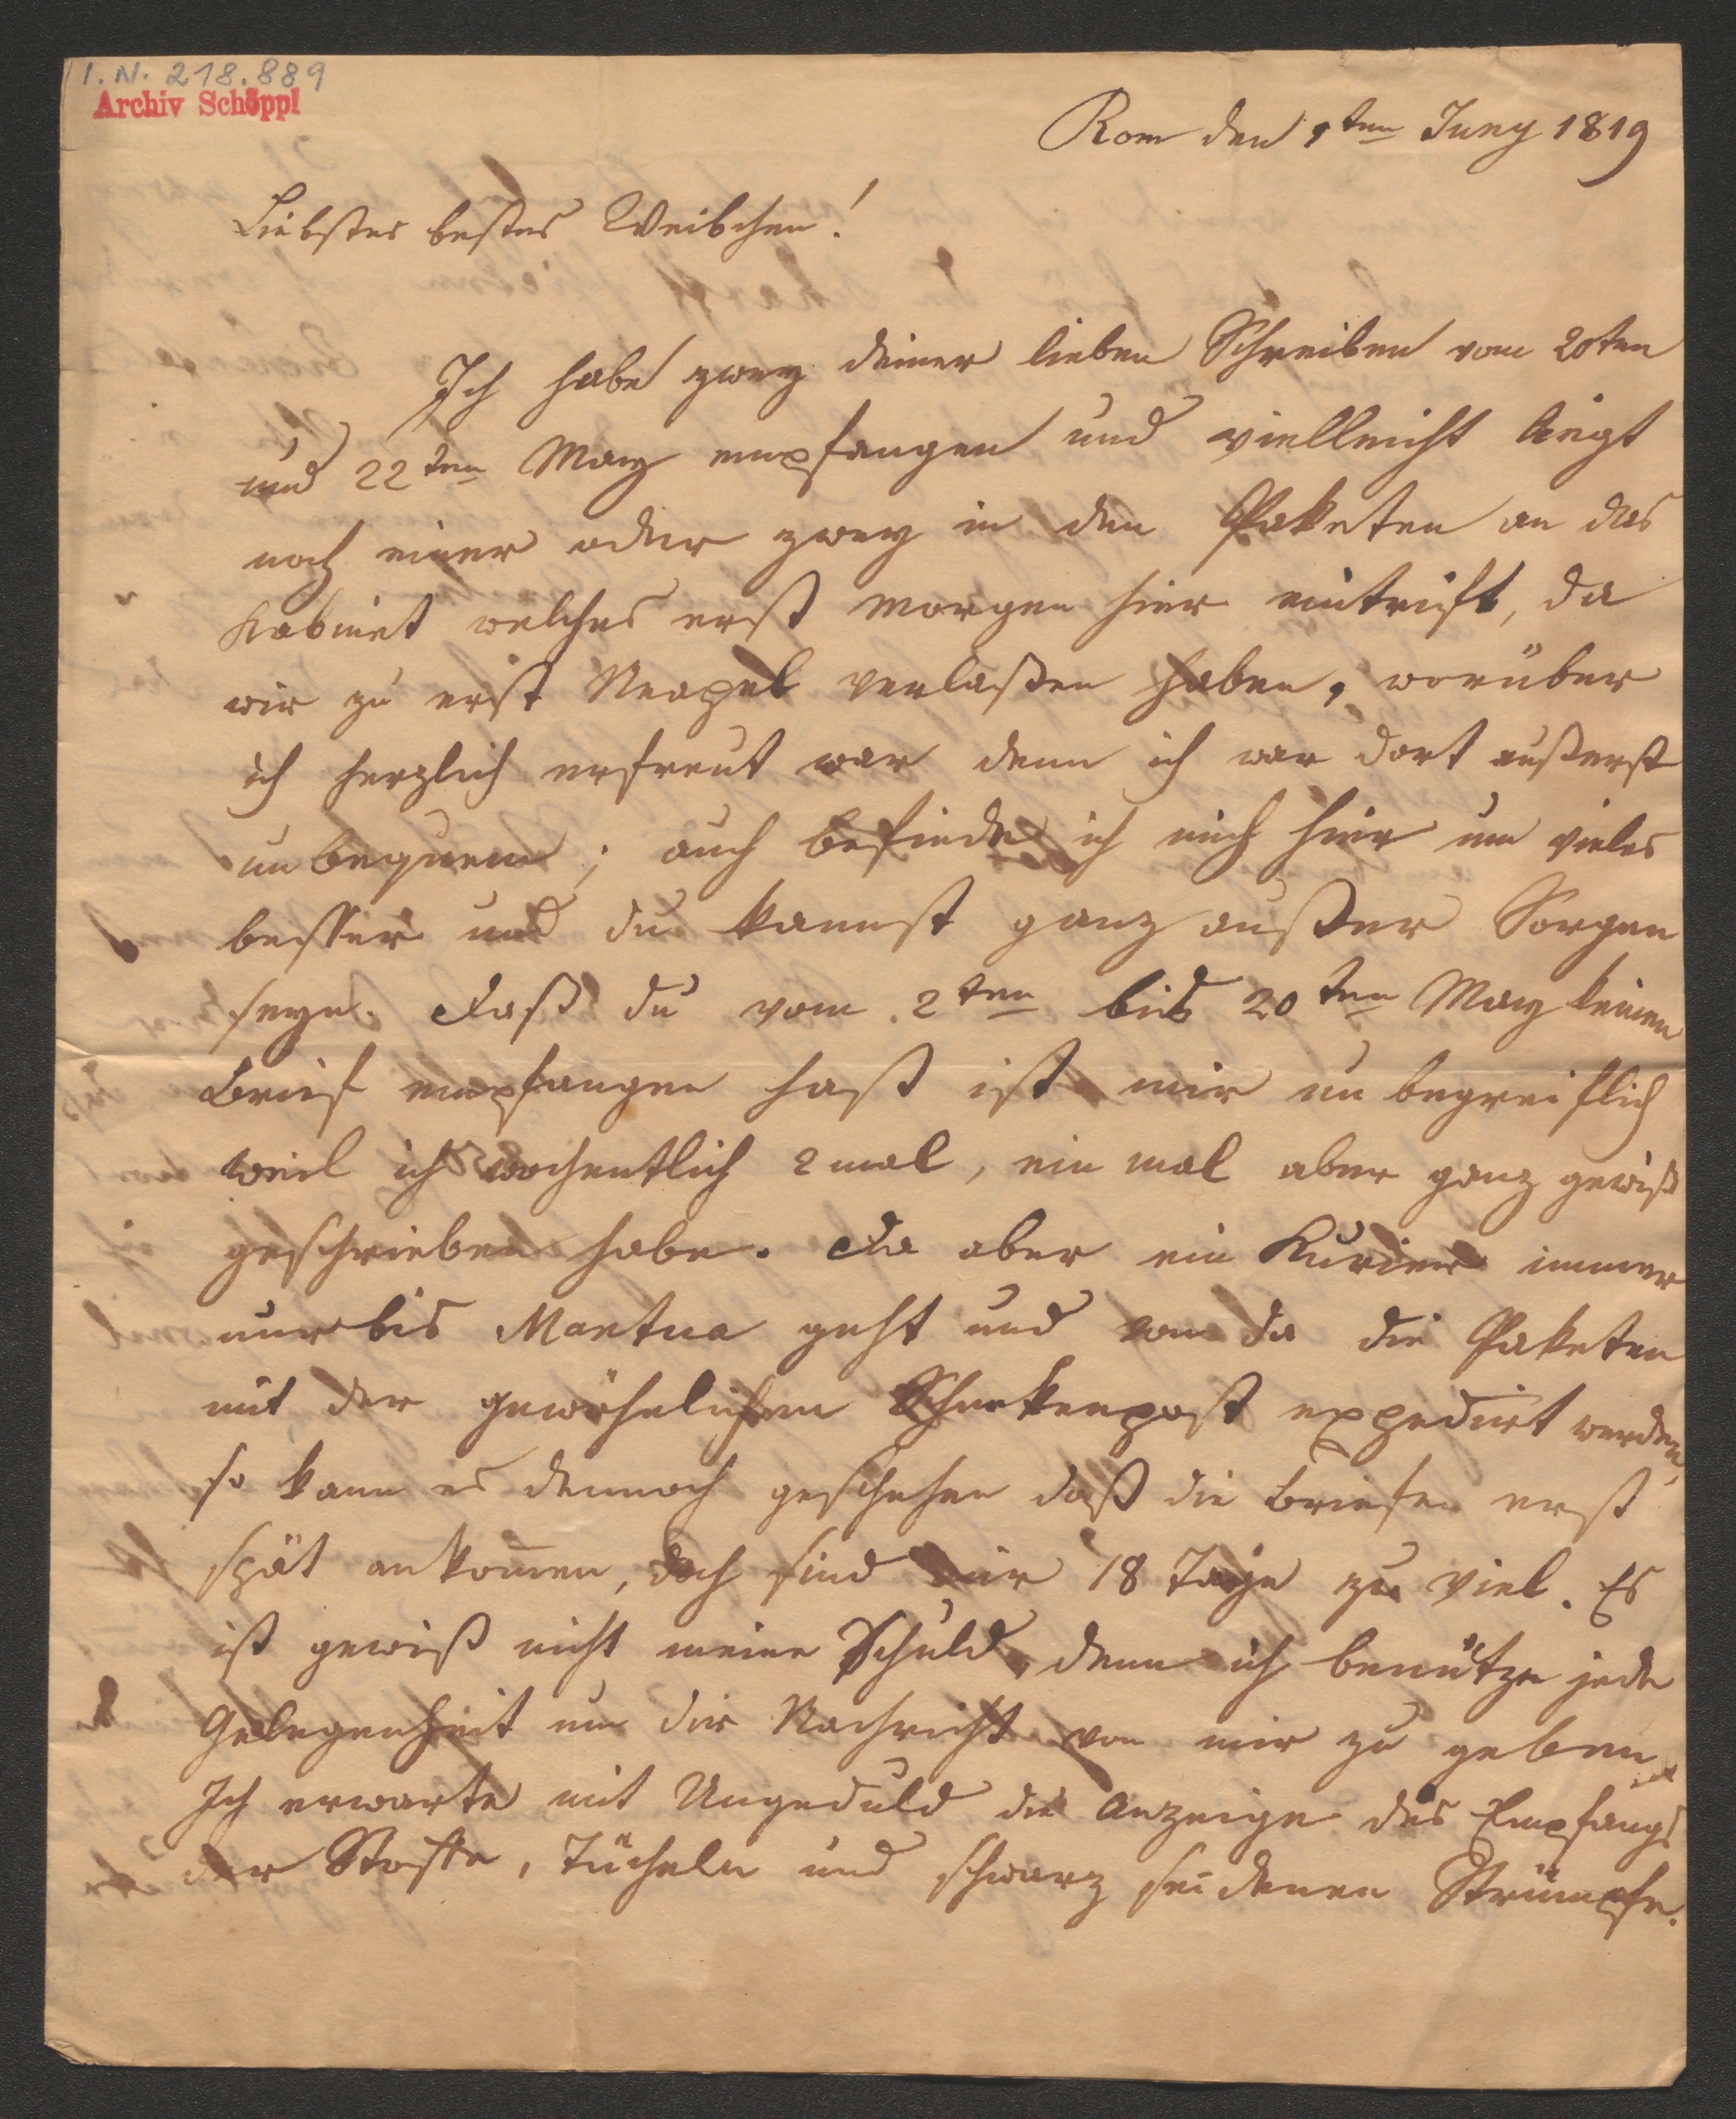 I. N. 218.889
Archiv Schöppl
Rom den 1ten Juny 1819
Liebstes bestes Weibchen!
Ich habe zwey deiner lieben Schreiben vom 20ten
und 22ten May empfangen und vielleicht liegt
noch einer oder zwey in den Paketen an das
Kabinet welches erst morgen hier eintrifft, da
wir zu erst Neapel verlaßen haben, worüber
ich herzlich erfreut war denn ich war dort äußerst
unbequem; auch befinde ich mich hier um vieles
besser und du kannst ganz außer Sorgen
seyn. Daß du vom 2ten bis 20ten May keinen
Brief empfangen hast ist mir unbegreiflich
weil ich wochentlich 2 mal, ein mal aber ganz gewiß
geschrieben habe. Da aber ein Kurier immer
nur bis Mantua geht und von da die Paketen
mit der gewöhnlichen Schnekenpost expedirt werden,
so kann es dennoch geschehen daß die Briefe erst
spät ankom̅en, doch sind mir 18 Tage zu viel. Es
ist gewiß nicht meine Schuld, denn ich benütze jede
Gelegenheit um dir Nachricht von mir zu geben.
Ich erwarte mit Ungeduld die Anzeige des Empfangs
der Stoffe, Tücheln und schwarz seidenen Strümpfe.